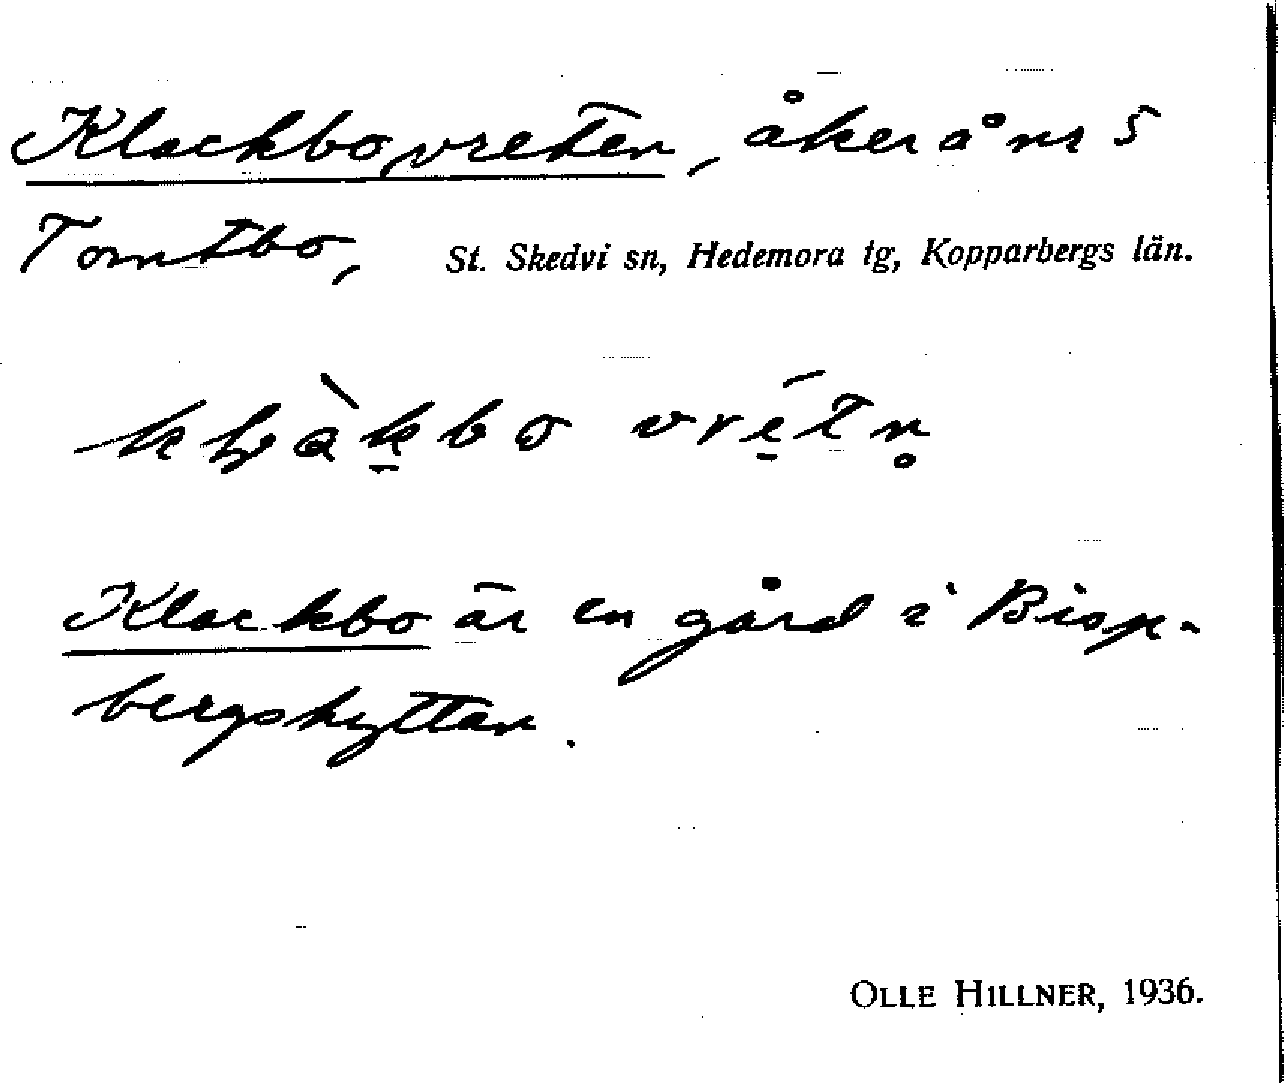 Klackbovreten, åker å nr 5
Tomtbo, St. Skedvi sn, Hedemora tg, Kopparbergs län.
vrétn̥
Klackbo är en gård i Bisp-
bergshyttan.
OLLE HILLNER, 1936.